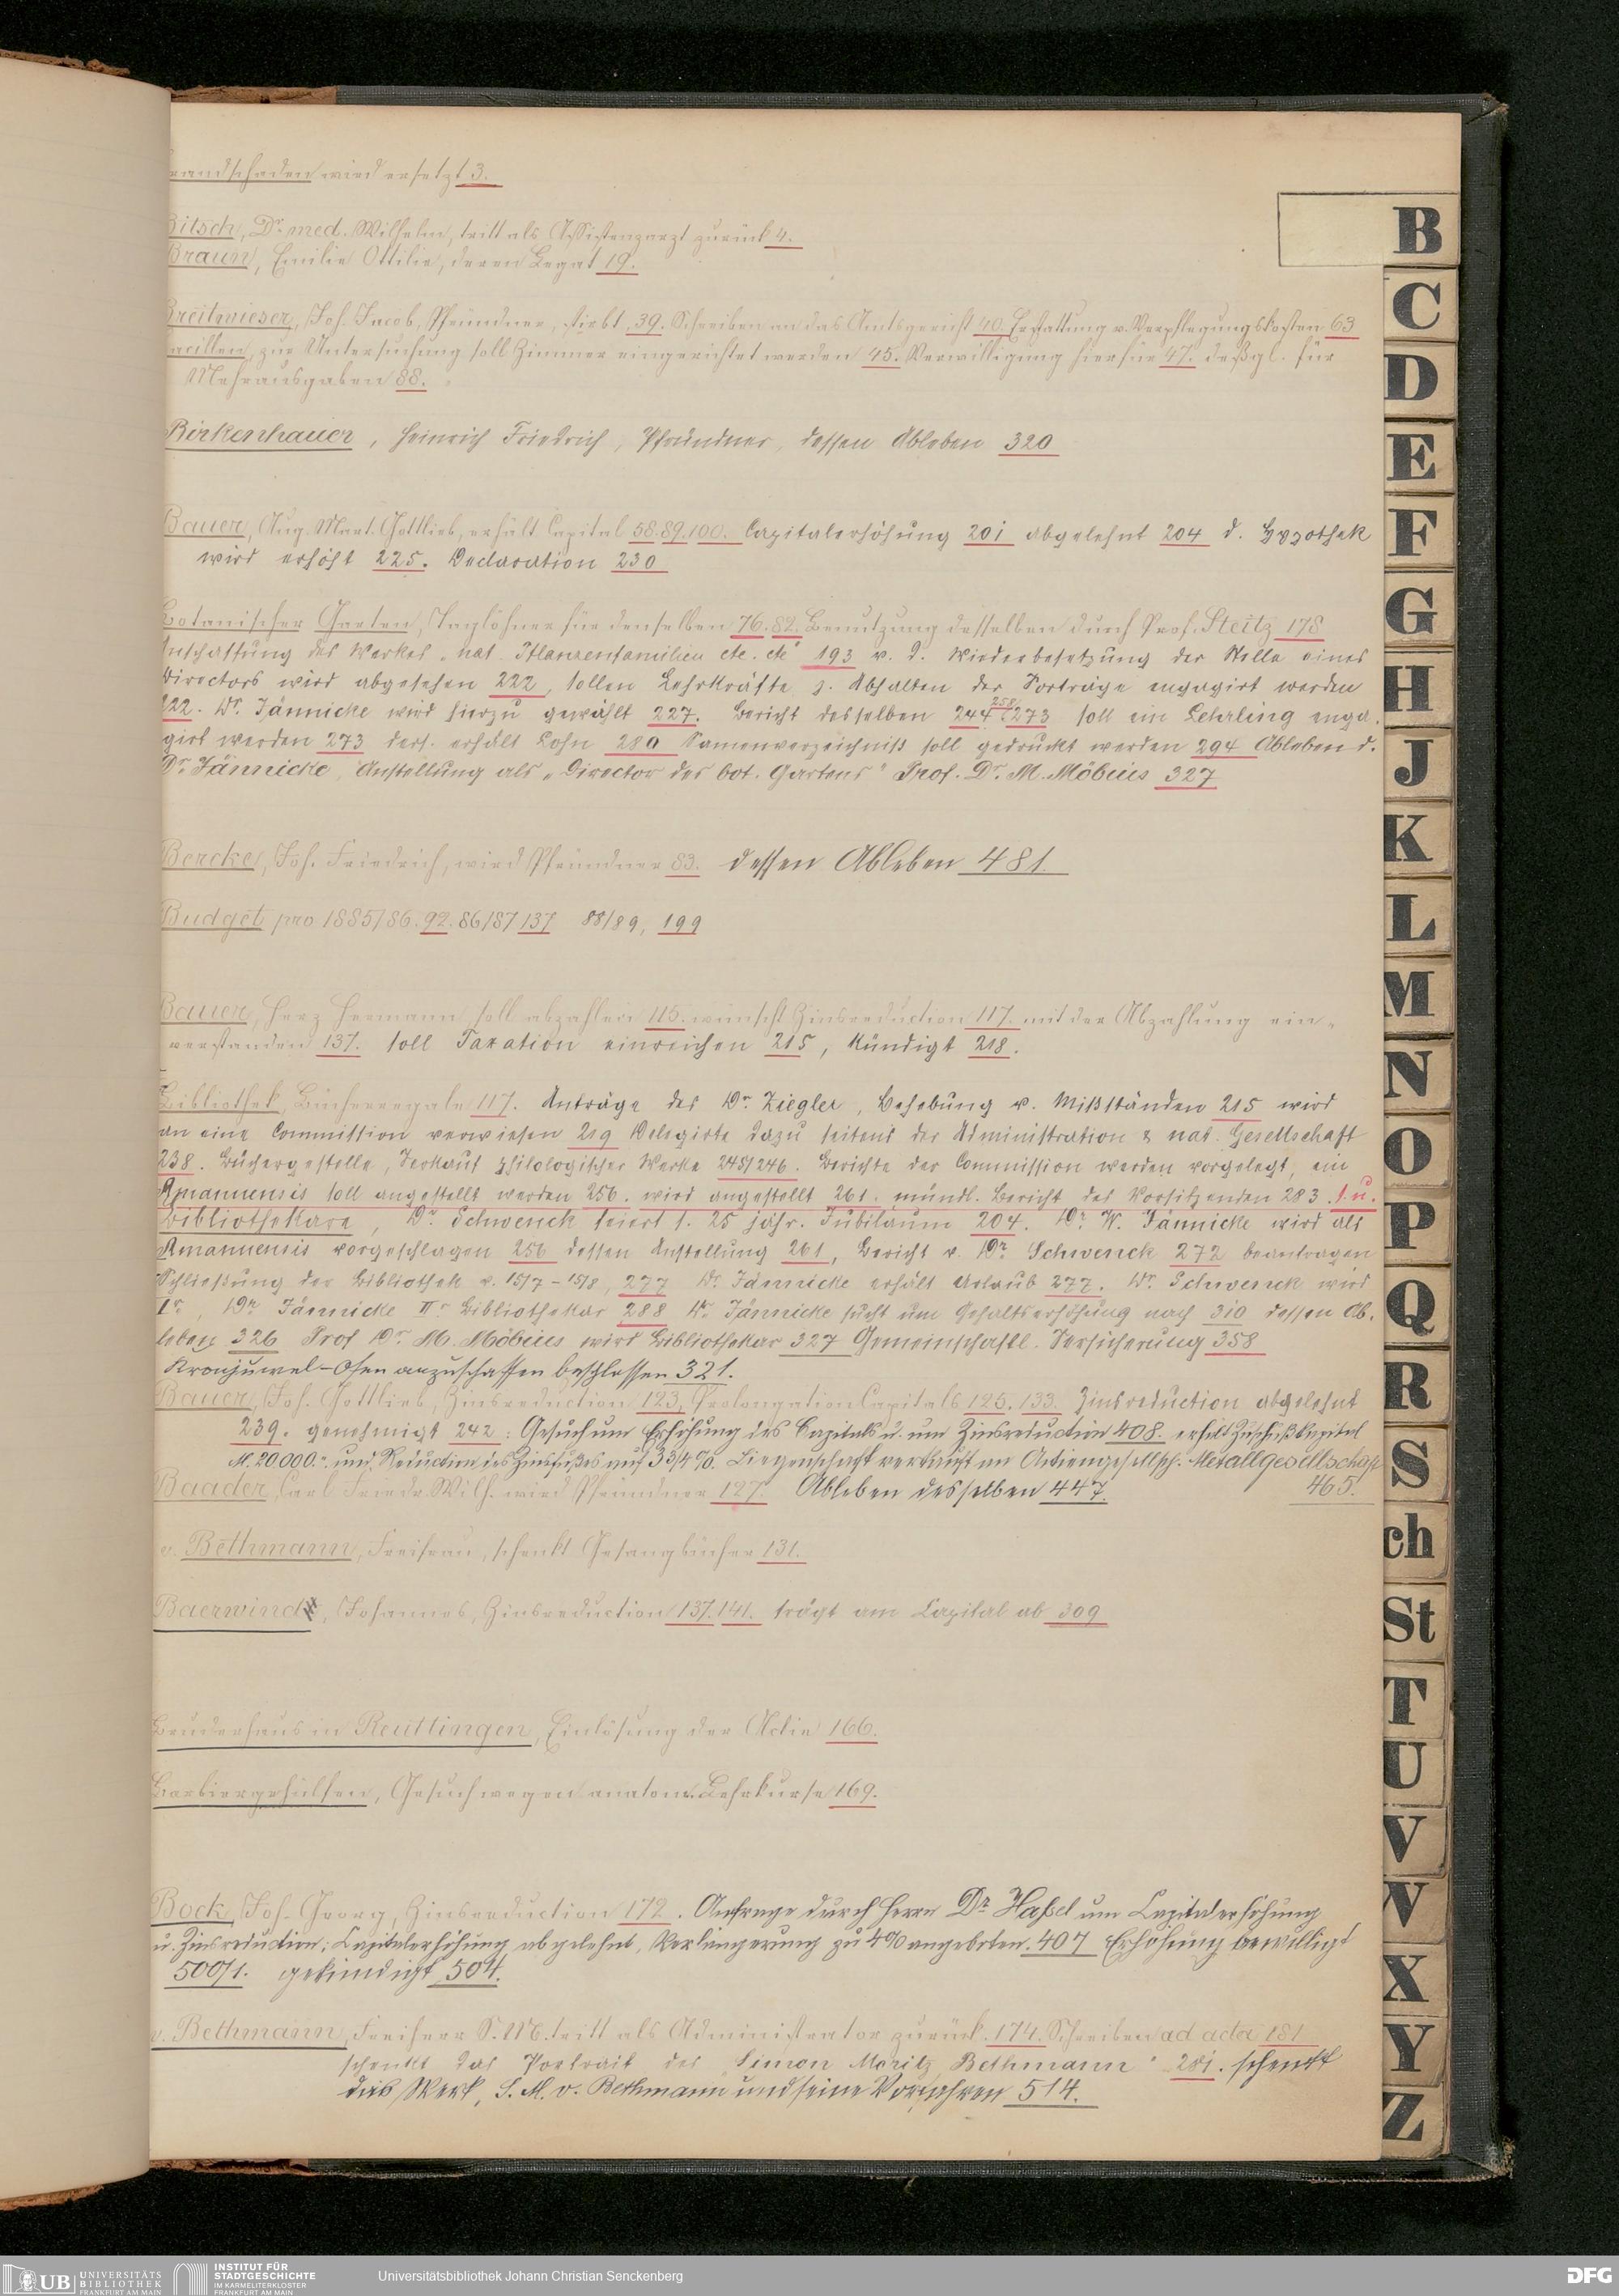 randschaden wird ersetzt 3.
Bitsch, Dr. med. Wilhelm, tritt als Assistenzarzt zurück 4.
Braun, Emilie Ottilie, deren Legat 19.
Breitwieser, Joh. Jacob, Pfründner, stirbt 39. Schreiben an das Amtsgericht 40. Erstattung v. Verpflegungskosten 63
acillen, zur Untersuchung soll Zimmer eingerichtet werden 45. Verwilligung hierfür 47. deßgl. für
Mehrausgaben 88.
Birkenhauer, Heinrich Friedrich, Pfründner, dessen Ableben 320
Bauer, Aug. Mart. Gottlieb, erhält Capital 58. 89. 100. Capitalerhöhung 201 abgelehnt 204 d. Hypothek
wird erhöht 225. Declaration 230
Botanischer Garten, Taglöhner für denselben 76. 82. Benutzung desselben durch Prof. Steitz 178
Anschaffung des Werkes „nat. Pflanzenfamilien etc. etc“ 193 v. d. Wiederbesetzung der Stelle eines
Directors wird abgesehen 222, sollen Lehrkräfte z. Abhalten der Vorträge engagirt werden
222. Dr. Jännicke wird hierzu gewählt 227. Bericht desselben 244 258 273 soll ein Lehrling enga-
girt werden 273 ders. erhält Lohn 280 Samenverzeichniß soll gedruckt werden 294 Ableben d.
Dr. Jännicke, Anstellung als „Director des bot. Gartens“ Prof. Dr. M. Möbius 327
Bercke, Joh. Friedrich, wird Pfründner 83. dessen Ableben 481.
Budget pro 1885/86. 92. 86/87 137 88/89, 199
Bauer, Herz Hermann soll abzahlen 115. wünscht Zinsreduction 117. mit der Abzahlung ein-
verstanden 137. soll Taxation einreichen 215, kündigt 218.
Bibliothek, Bücherregale 117. Anträge des Dr. Ziegler, Behebung v. Mißständen 215 wird
an eine Commission verwiesen 219 Delegirte dazu seitens der Administration & nat. Gesellschaft
238. Büchergestelle, Verkauf philologischer Werke 245/246. Berichte der Commission werden vorgelegt, ein
Amanuensis soll angestellt werden 256. wird angestellt 261. mündl. Bericht des Vorsitzenden 283. s. u.
Bibliothekare, Dr. Schwenck feiert s. 25 jähr. Jubiläum 204. Dr. W. Jännicke wird als
Amanuensis vorgeschlagen 256 dessen Anstellung 261, Bericht v. Dr. Schwenck 272 beantragen
Schließung der Bibliothek v. 15/7 - 15/8, 277 Dr. Jännicke erhält Urlaub 277. Dr. Schwenck wird
Ir, Dr. Jännicke IIr Bibliothekar 288 Dr. Jännicke sucht um Gehaltserhöhung nach 310 dessen Ab-
leben 326 Prof Dr. M. Möbius wird Bibliothekar 327 Gemeinschaftl. Versicherung 358
Kronjuwel-Ofen anzuschaffen beschlossen 321.
Bauer, Joh. Gottlieb, Zinsreduction 123, Prolongation Capitals 125. 133. Zinsreduction abgelehnt
239. genehmigt 242: Gesuch um Erhöhung des Capitals u. um Zinsreduction 408. erhält Zuschußkapital
M. 20000.- und Reduction des Zinsfußes auf 3 3/4 %. Liegenschaft verkauft an Actiengesellsch. Metallgesellschaft
465.
Baader, Carl Friedr. Wilh. wird Pfründner 127. Ableben desselben 447.
v. Bethmann, Freifrau, schenkt Gesangbücher 131.
Baerwind, Johannes, Zinsreduction 137. 141. trägt am Capital ab 309
Bruderhaus in Reuttingen, Einlösung der Actie 166.
Barbiergehülfen, Gesuch wegen anatom. Lehrkurse 169.
Bock, Joh. Georg, Zinsreduction 172. Anfrage durch Herrn Dr. Haßel um Capitalerhöhung
u. Zinsreduction; Capitalerhöhung abgelehnt, Verlängerung zu 4% angeboten. 407 Erhöhung bewilligt
500/1. gekündigt 504.
v. Bethmann, Freiherr S. M. tritt als Administrator zurück. 174. Schreiben ad acta 181
schenkt das Portrait des Simon Moritz Bethmann 281. schenkt
das Werk, S. M. v. Bethmann und seine Vorfahren 514.
B
C
D
E
F
G
H
J
K
L
M
N
O
P
Q
R
S
ch
St
T
U
V
W
X
Y
Z
UB UNIVERSITÄTS BIBLIOTHEK FRANKFURT AM MAIN
INSTITUT FÜR STADTGESCHICHTE IM KARMELITERKLOSTER FRANKFURT AM MAIN
Universitätsbibliothek Johann Christian Senckenberg
DFG